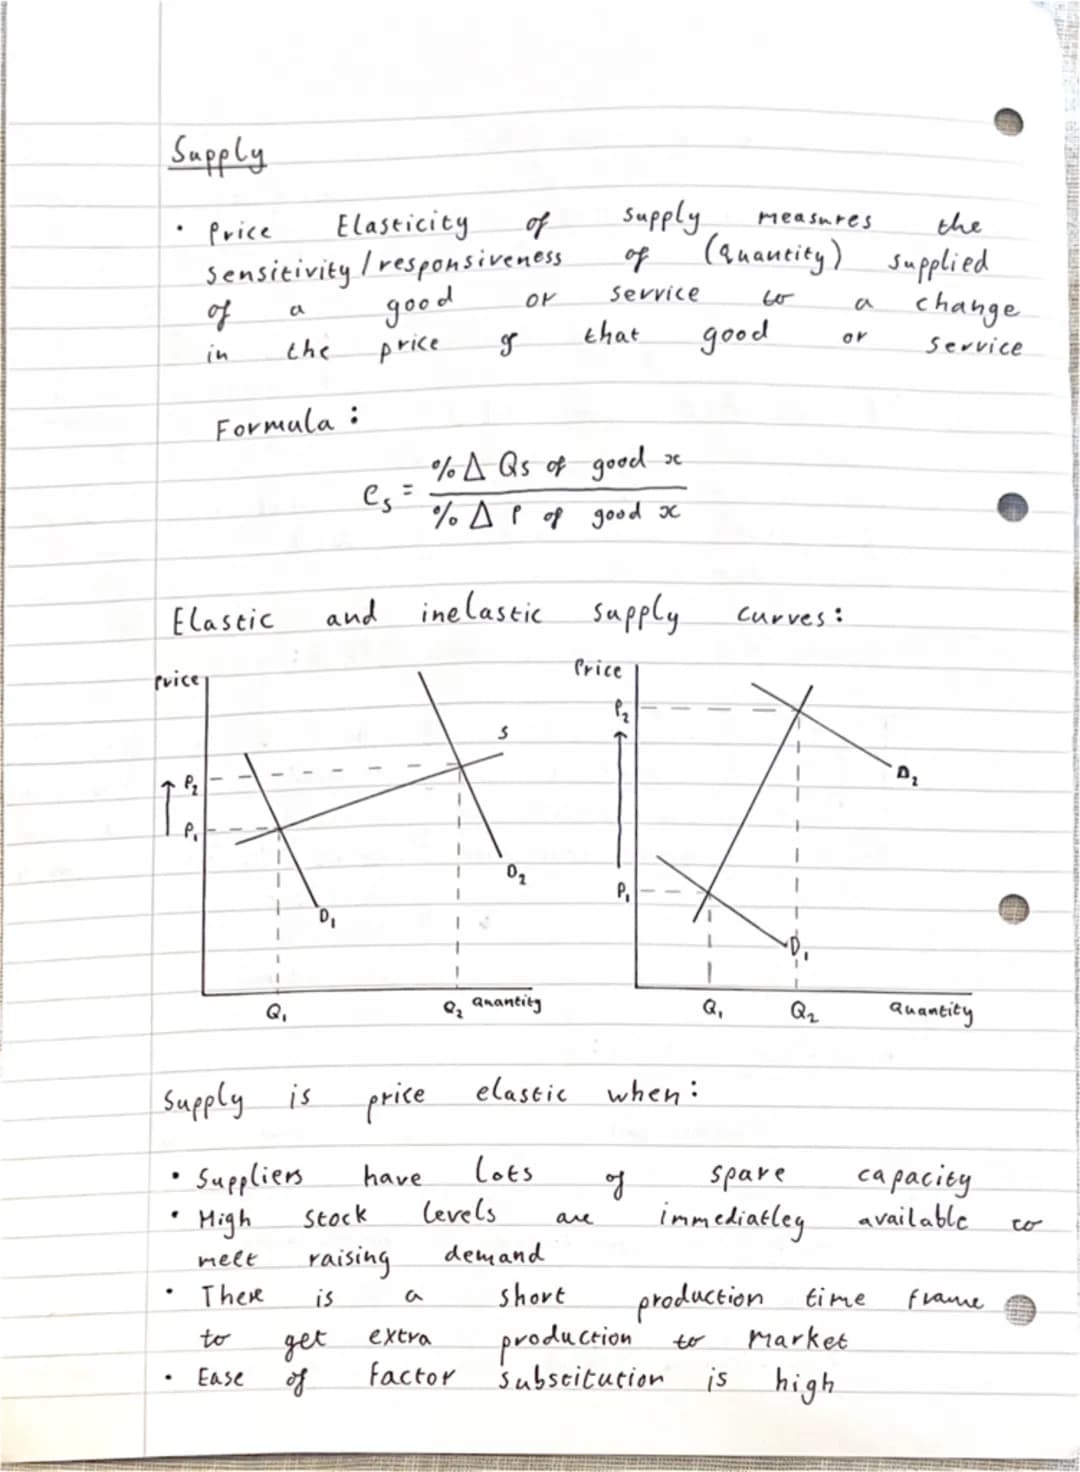 Supply
• Price Elasticity of supply measures the
sensitivity / responsiveness of (Quantity) supplied
of a good or service to a change
in the price of that good or service
Formula :
es = %Δ Qs of good x
%Δ P of good x
Elastic and inelastic supply curves:
Price
S
P₂
P₁
D₁
D₂
Q₁
Q₂ Quantity
Price
P₂
P₁
D₂
D₁
Q₁ Q₂ Quantity
Supply is price elastic when:
• Suppliers have lots of spare capacity
• High stock levels are immediatley available to
meet raising demand
• There is a short production time frame
to get extra production to market
• Ease of factor substitution is high